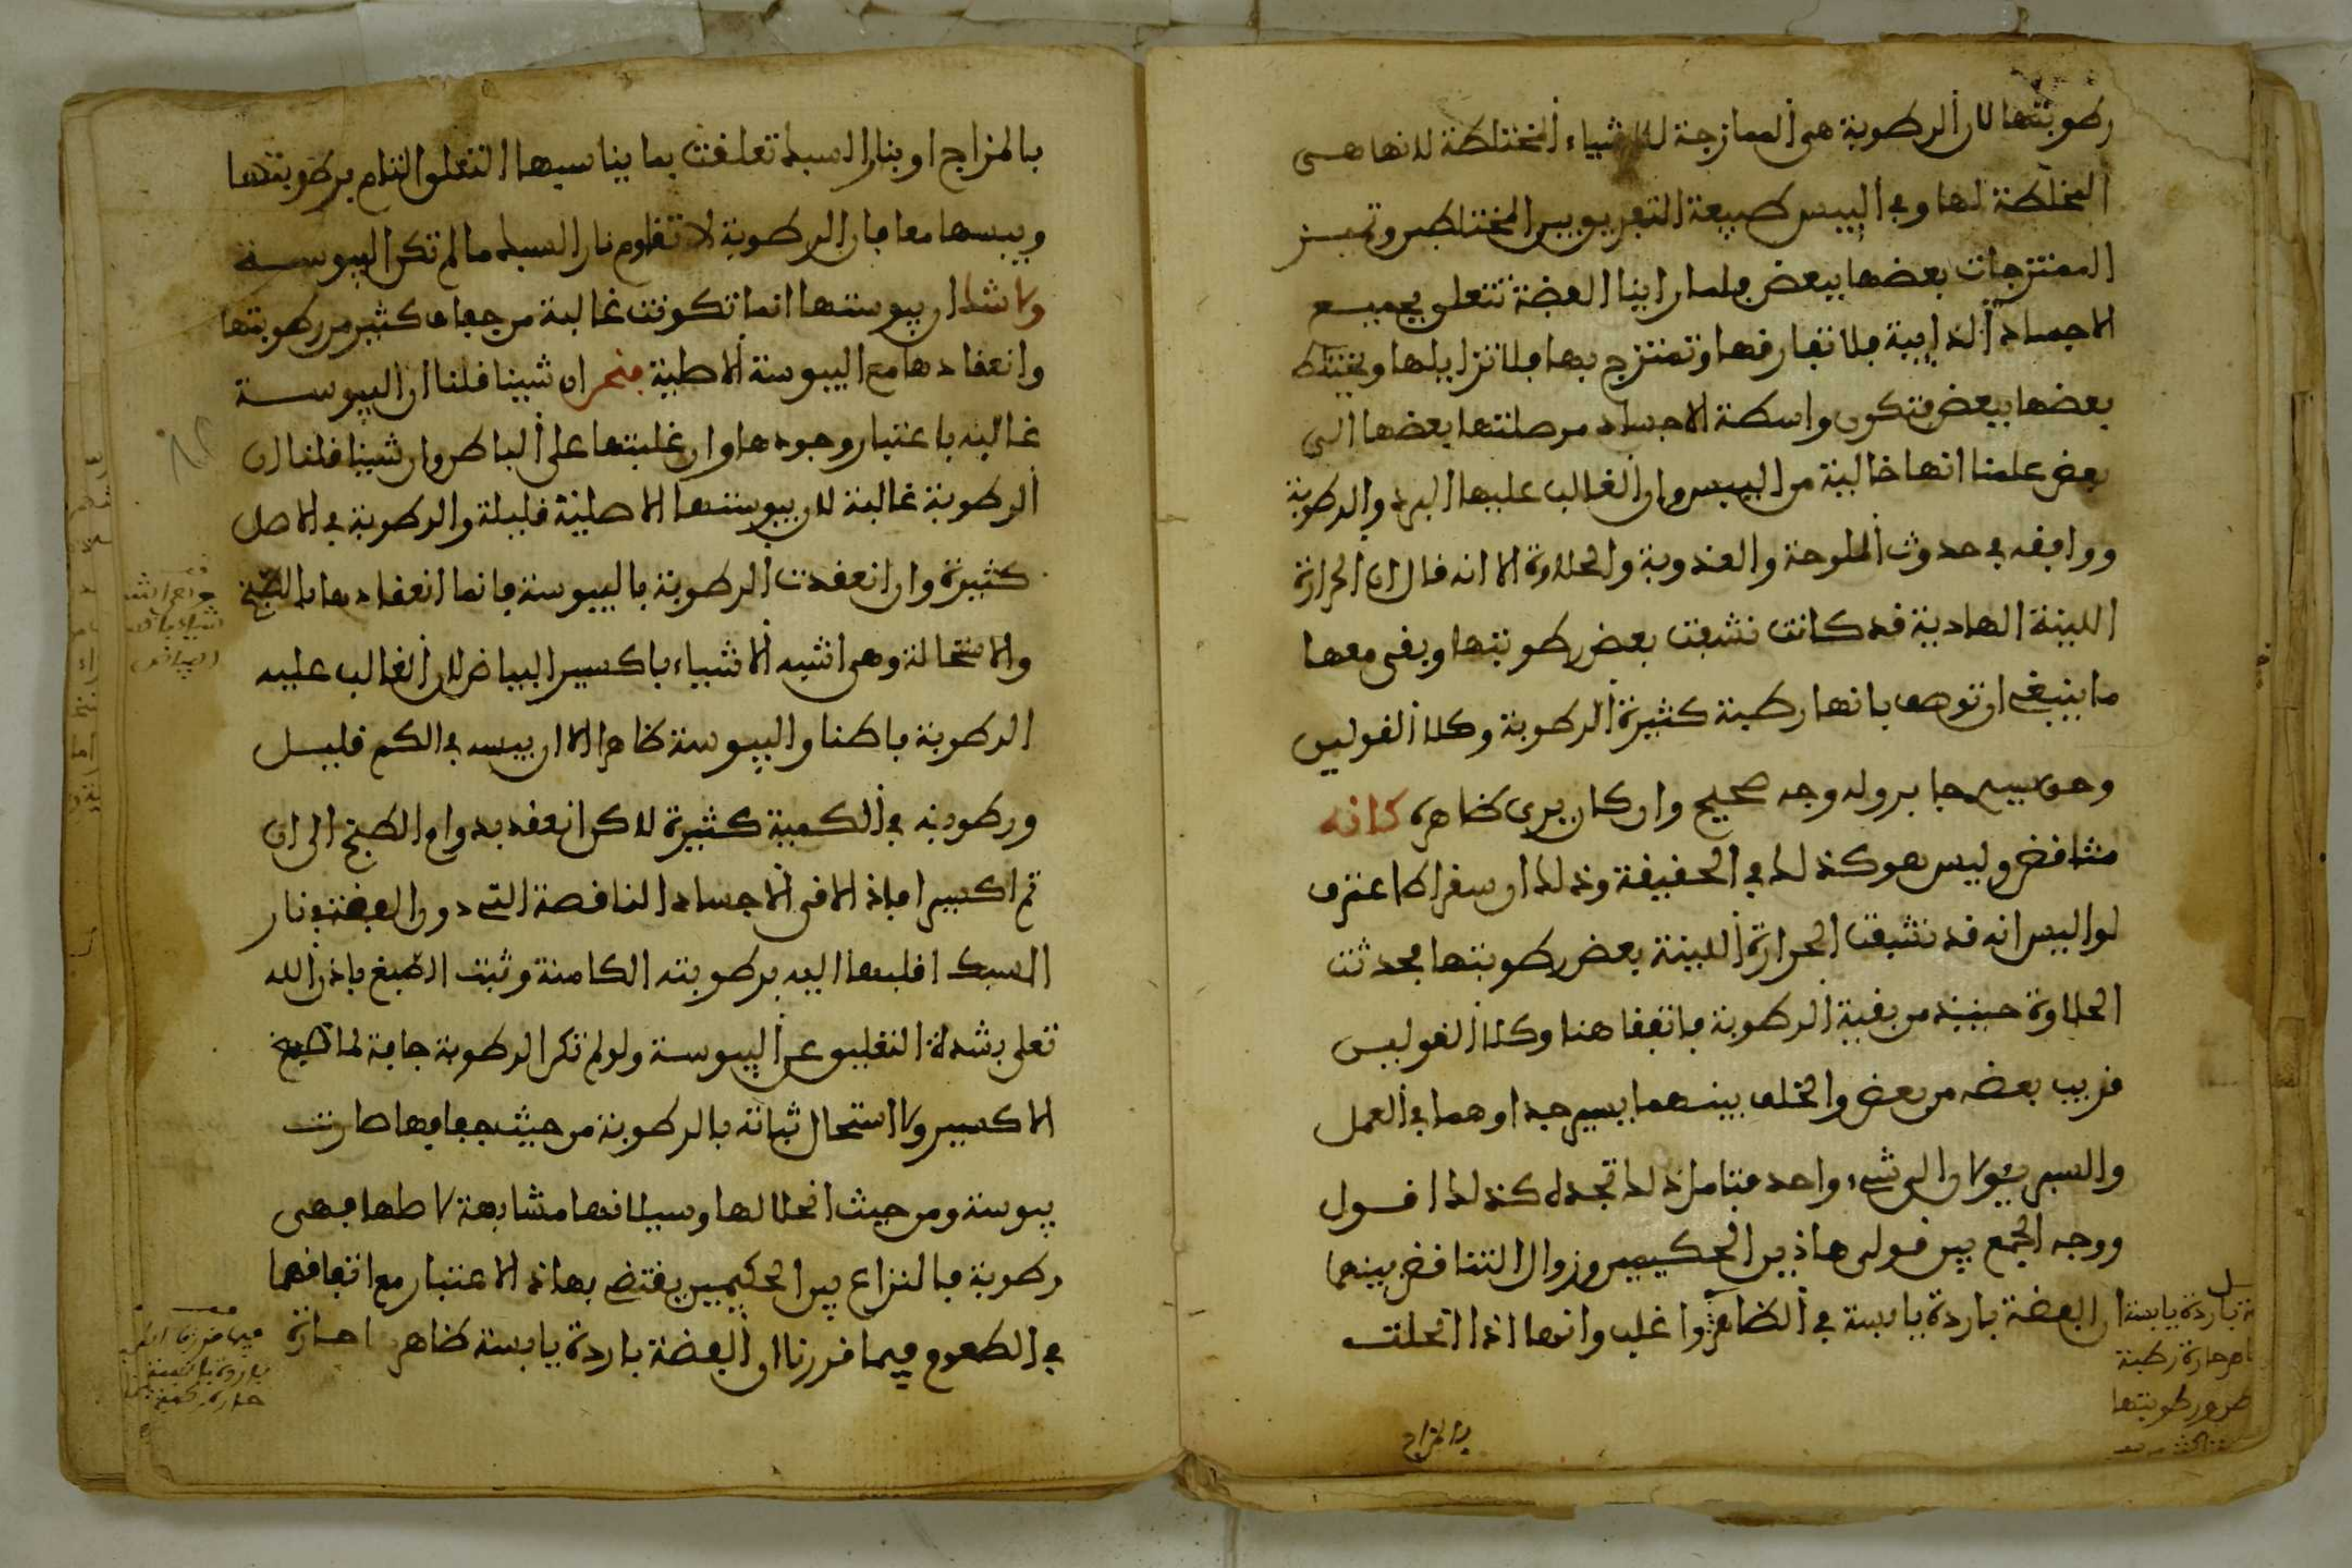 رطوبتها لان الرطوبة هى الممازجة للاشياء المختلطة لانها هى
المخلطة لها وفى اليبس طبيعة التفريق بين المختلطين وتمييز
الممتزجات بعضها ببعض فلما راينا الفضة تتعلق بجميع
الاجساد الذايبة فلا تفارقها وتمتزج بها فلا تزايلها ويختلط
بعضها ببعض فتكون واسطة الاجساد من صلتها بعضها الى
بعض علمنا انها خالية من اليبس وان الغالب عليها البرد والرطوبة
ووافقه فى حدوث الملوحة والعذوبة والحلاوة الا انه قال ان الحرارة
اللينة الهادية قد كانت نشفت بعض رطوبتها وبقى معها
ما ينبغى ان توصف بانها رطبة كثيرة الرطوبة وكلا القولين
جابر وله وجه صحيح وان كان يرى ظاهره كانه
متناقض وليس هو كذلك فى الحقيقة وذلك ان سقراط اعترف
لواليس انه قد نشفت الحرارة اللينة بعض رطوبتها فحدثت
الحلاوة حينيذ من بقية الرطوبة فاتفقا هنا وكلا القولين
قريب بعضه من بعض والخلف بينهما يسير جدا وهما فى العمل
والسر يؤلان الى شىء واحد فتامل ذلك تجده كذلك اقول
ووجه الجمع بين قولى هاذين الحكيمين وزوال التناقض بينهما
ان الفضة باردة يابسة فى الظاهر اغلب وانها اذا انحلت
بالمزاج
ة باردة يابسة
حارة رطبة
رطوبتها
بالمزاج او بنار السبك تعلقت بما يناسبها التعلق التام برطوبتها
ويبسها معا فان الرطوبة لا تقاوم نار السبك ما لم تكن اليبوسة
ولا شك ان يبوستها انما تكونت غالبة من جفاف كثير من رطوبتها
وانعقادها مع اليبوسة الاصلية فنحن ان شينا قلنا ان اليبوسة
غالبه باعتبار وجودها وان غلبتها على الباطن وان شينا قلنا ان
الرطوبة غالبة لان يبوستها الاصلية قليلة والرطوبة فى الاصل
كثيرة وان انعقدت الرطوبة باليبوسة فانما انعقادها بالطبخ
والاستحالة وهى اشبه الاشياء باكسير البياض لان الغالب عليه
الرطوبة باطنا واليبوسة ظاهرا الا ان يبسه فى الكم قليل
ورطوبته فى الكمية كثيرة لاكن انعقد بدوام الطبخ الى ان
تم اكسيرا فاذا لاقى الاجساد الناقصة التى دون الفضة فى نار
السبك اقلبها اليه برطوبته الكامنة وثبت الصبغ باذن الله
تعلى بشدة التعليق عن اليبوسة ولو لم تكن الرطوبة جافة لما صبغ
الاكسير ولا استحال ثباته بالرطوبة من حيث جفافها صارت
يبوسة ومن حيث انحلالها وسيلانها مشابهة لاصلها فهى
رطوبة فالنزاع بين الحكيمين يقتضى بهاذا الاعتبار مع اتفاقهما
فى الطعوم فيما قررنا ان الفضة باردة يابسة ظاهرا حارة
البياض
فيما قررنا ان
باردة يابسة
حارة رطبة